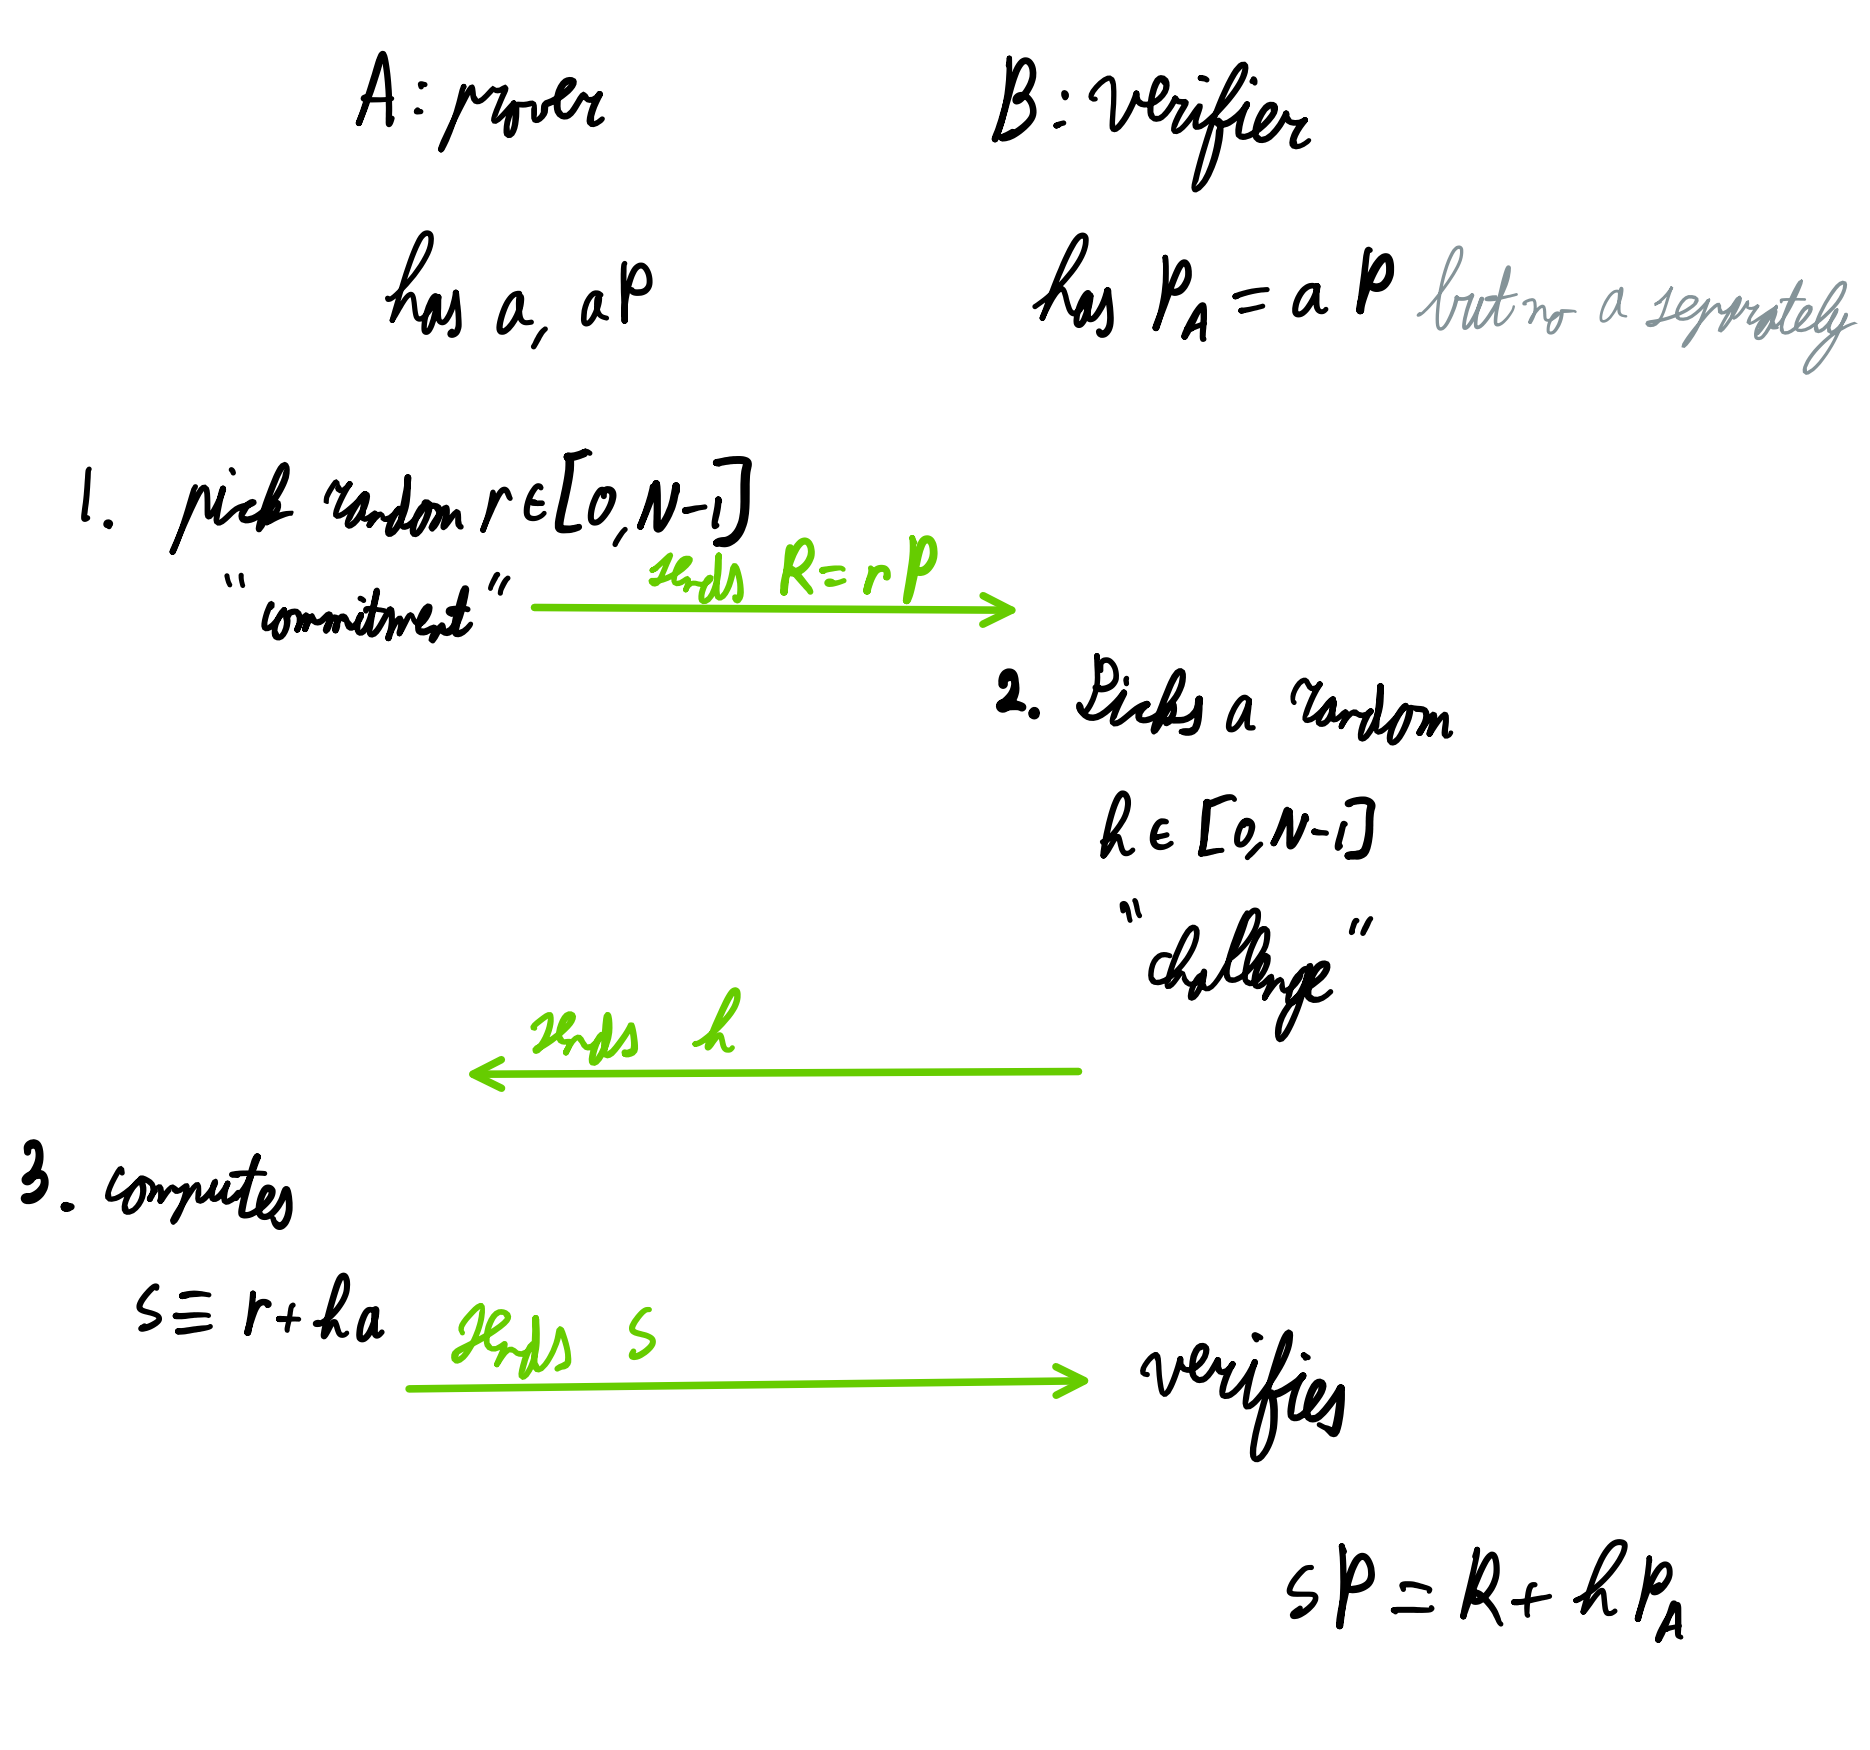 A: prover
B: verifier
has a, aP
has P_A = a P but no a seprately
1. pick random r ∈ [0, N-1]
"commitment"
sends R = r P
2. Picks a random
h ∈ [0, N-1]
"challenge"
sends h
3. computes
s ≡ r + ha
sends s
verifies
sP = R + h P_A